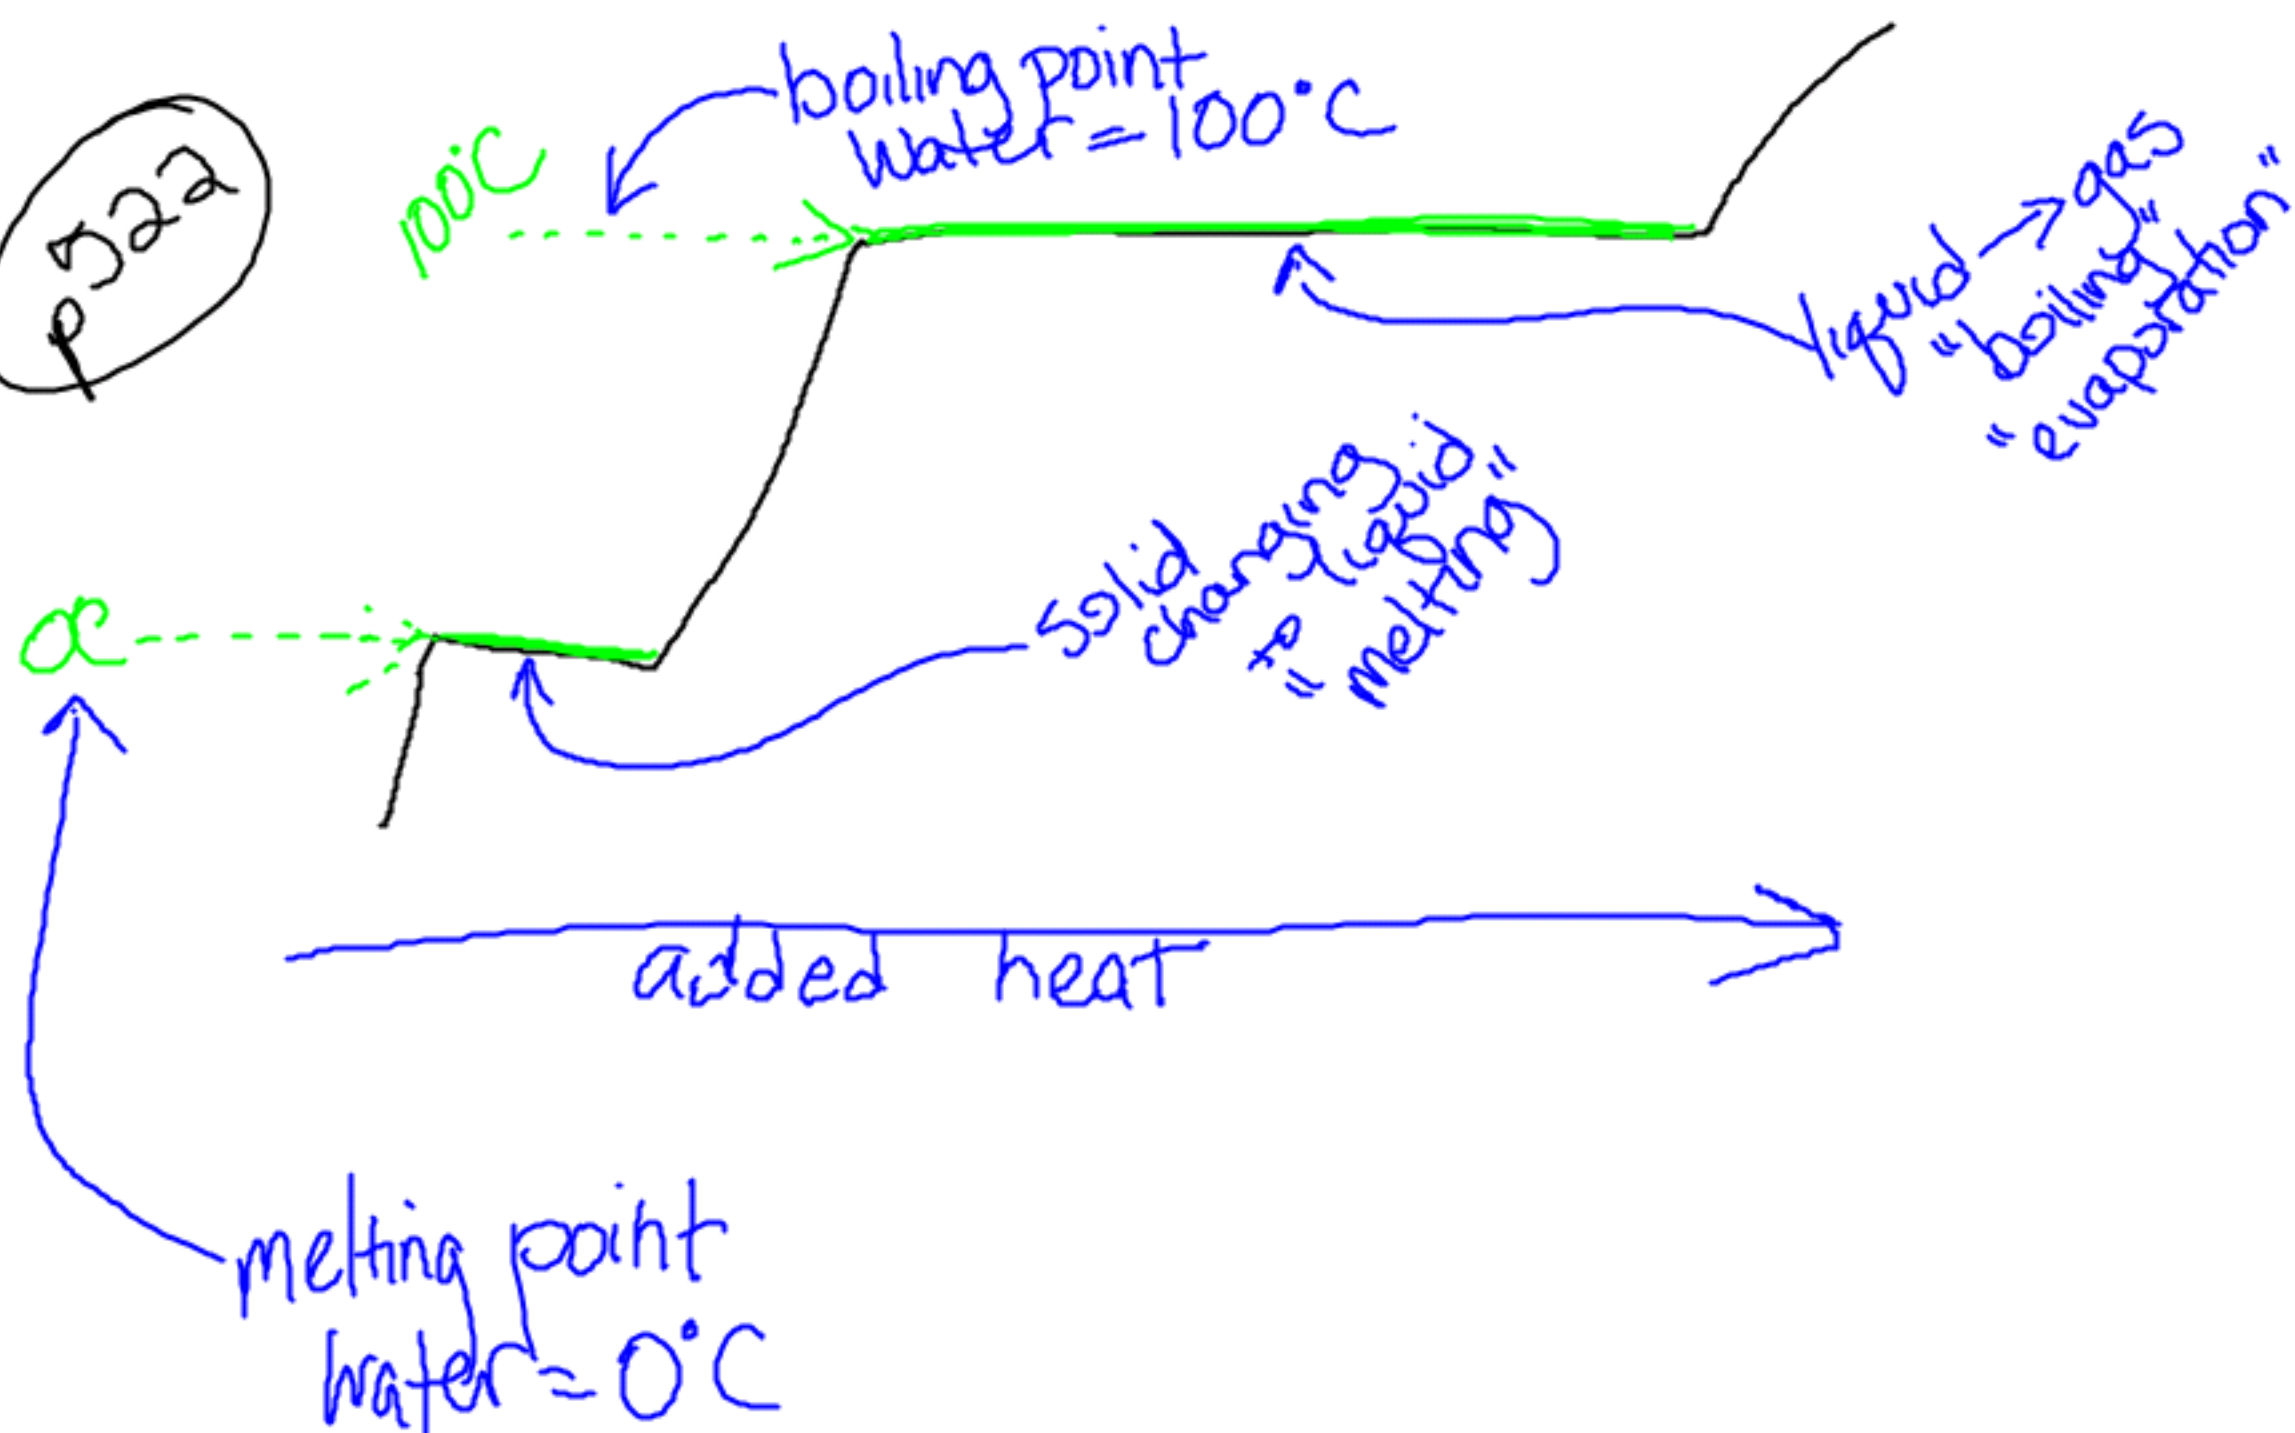 p 522
100°C
boiling point
water = 100°C
liquid → gas
"boiling"
"evaporation"
solid
changing
to liquid
"melting"
0C
added heat
melting point
water = 0°C